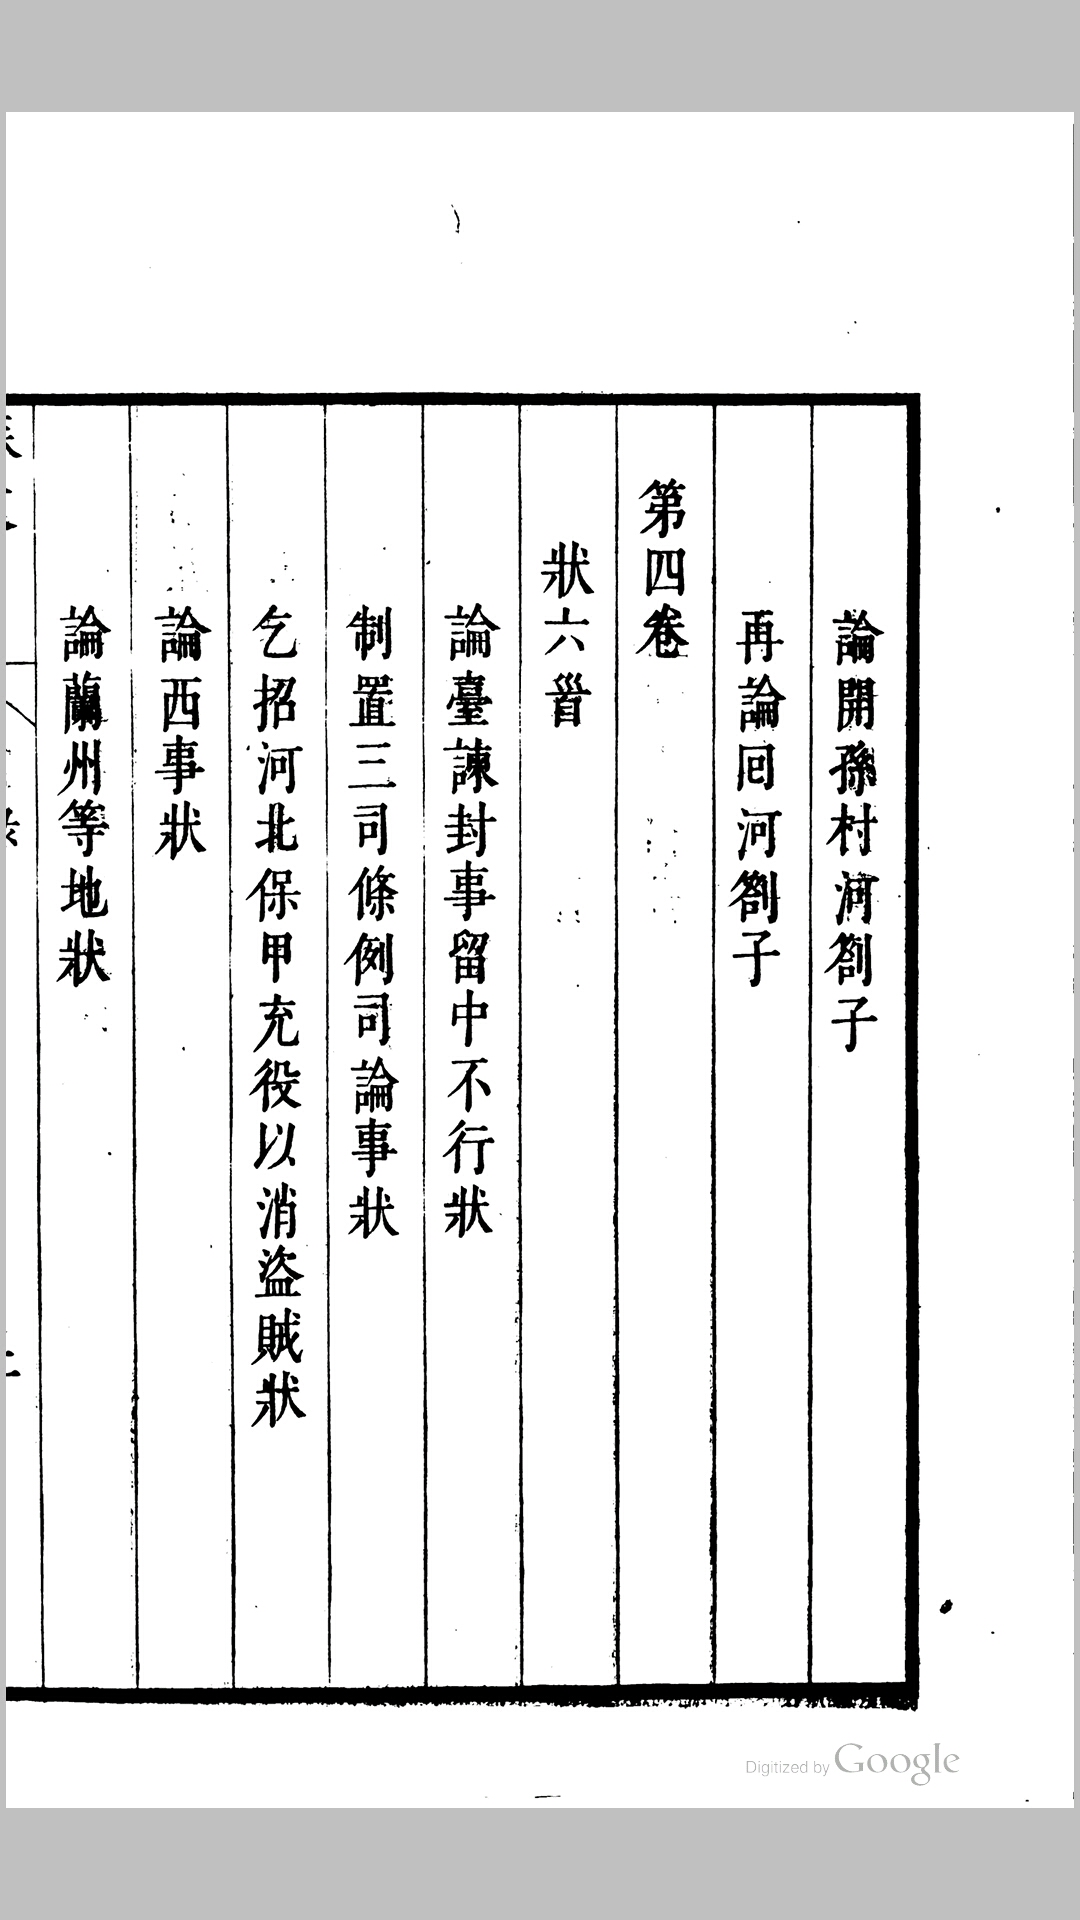 論開孫村河劄子
再論回河劄子
第四卷
狀六首
論臺諫封事留中不行狀
制置三司條例司論事狀
乞招河北保甲充役以消盜賊狀
論西事狀
論蘭州等地狀
Digitized by Google